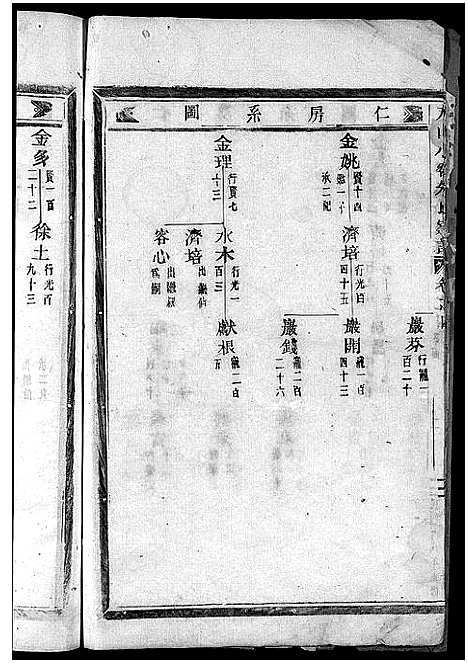 仁房系圖
巖芬 行龍一百二十
金姚 賢十四 繼一子 承二祀
濟培 行光百四十五
巖開 龍一百四十三
巖錢 龍二百二十六
金理 行賢七十三
水木 行光一百三
獻根 龍二百
濟培 出繼伯
容心 出繼叔 爲嗣
金多 賢一百二十二
徐土 行光百九十三